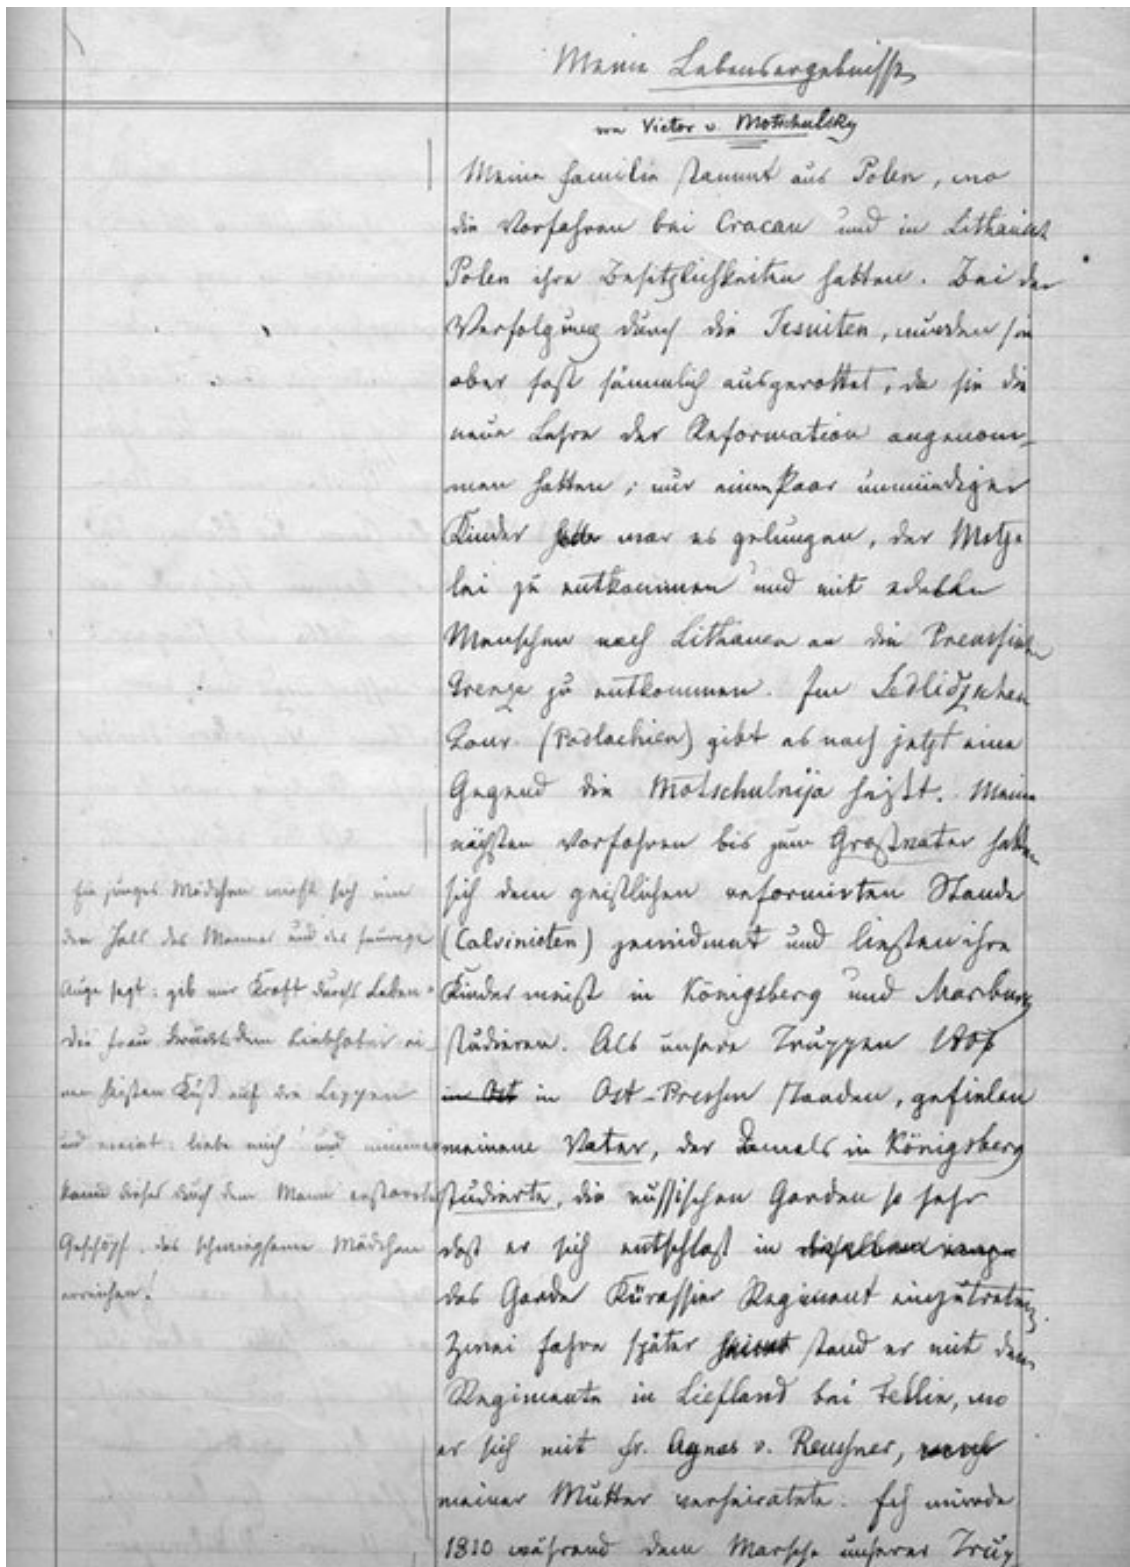 Meine Lebensergebnisse
von Victor v. Motschulsky
Meine Familie stammt aus Polen, wo
die Vorfahren bei Cracau und in Lithauisch
Polen ihre Besitzlichkeiten hatten. Bei der
Verfolgung durch die Jesuiten, wurden sie
aber fast sämmlich ausgerottet, da sie die
neue Lehre der Reformation angenom-
men hatten; nur einem Paar unmündiger
Kinder war es gelungen, der Metze
lei zu entkommen und mit edeln
Menschen nach Lithauen an die Preussische
Grenze zu entkommen. Im Sedlidzschen
Gouv. (Podlachien) gibt es noch jetzt eine
Gegend die Motschulnija heißt. Meine
nächsten Vorfahren bis zum Großvater hatten
sich dem geistlichen reformirten Stande
(Calvinisten) gewidmet und ließen ihre
Kinder meist in Königsberg und Marburg
studieren. Als unsere Truppen
in Ost in Ost-Preussen standen, gefielen
meinem Vater, der damals in Königsberg
studierte, die russischen Garden so sehr
daß er sich entschloß in
das Garde Kürassier Regiment einzutreten.
Zwei Jahre später stand er mit dem
Regimente in Liefland bei Fellin, wo
er sich mit Fr. Agnes v. Reussner,
meiner Mutter verheiratete. Ich wurde
1810 während dem Marsche unserer Trup
Ein junges Mädchen wirft sich um
den Hals des Mannes und das feurige
Auge sagt: gib mir Kraft durchs Leben -
Die Frau drückt dem Liebhaber ei-
nen heißen Kuß auf die Lippen
und meint: liebe mich! und nimmer
kann dieses durch den Mann
Geschöpf, das schweigsame Mädchen
erreichen!